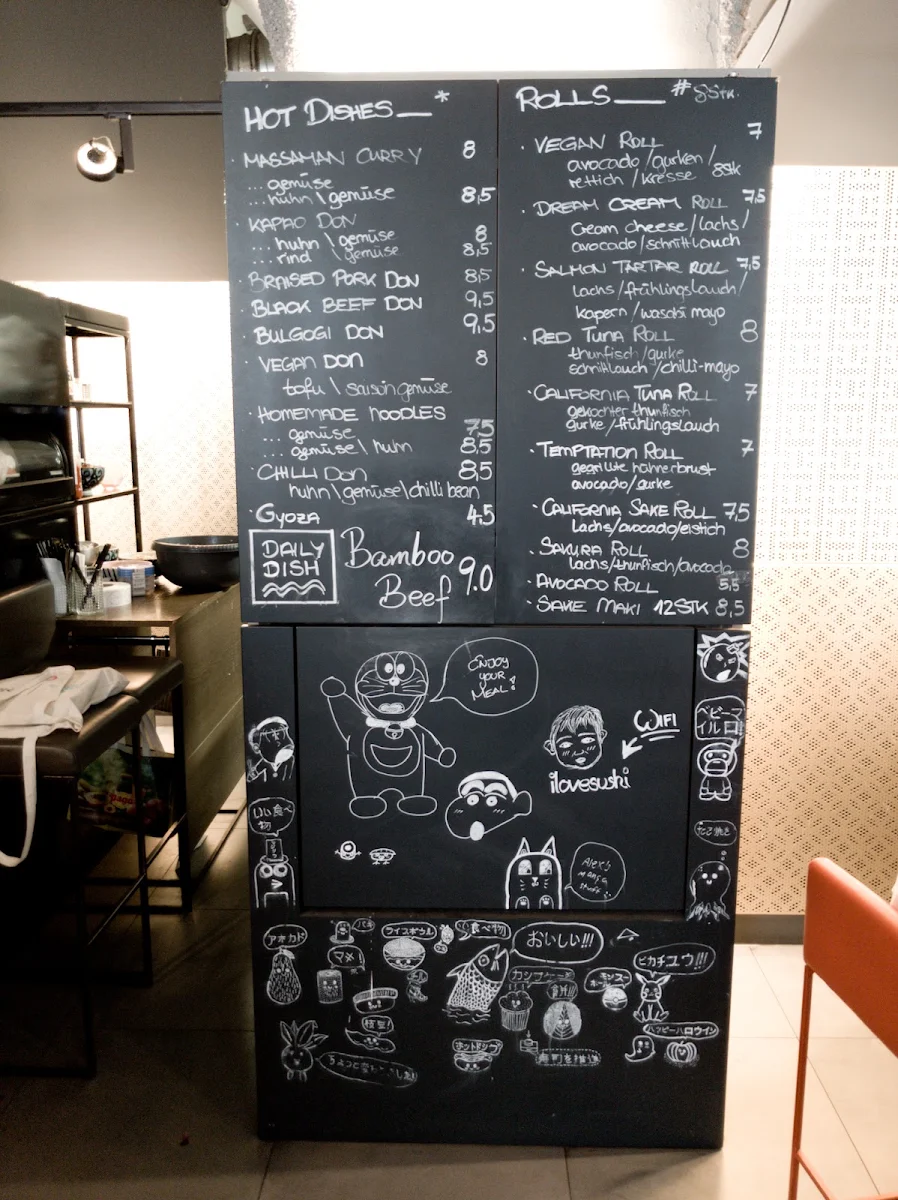 HOT DISHES__*
MASSAMAN CURRY 8
... gemüse
... huhn \ gemüse 8,5
KAPAO DON
... huhn \ gemüse 8
... rind \ gemüse 8,5
BRAISED PORK DON 8,5
BLACK BEEF DON 9,5
BULGOGI DON 9,5
VEGAN DON 8
tofu \ saison gemüse
HOMEMADE NOODLES
... gemüse 7,5
... gemüse \ huhn 8,5
CHILLI DON 8,5
huhn \ gemüse \ chilli bean
GYOZA 4.5
DAILY
DISH
Bamboo
Beef 9.0
ROLLS___ # 8Stk.
VEGAN ROLL 7
avocado / gurken /
rettich / kresse 8stk
DREAM CREAM ROLL 7,5
Cream cheese / lachs /
avocado / schnittlauch
SALMON TARTAR ROLL 7,5
lachs / frühlingslauch /
kapern / wasabi mayo
RED TUNA ROLL 8
thunfisch / gurke
schnittlauch / chilli-mayo
CALIFORNIA TUNA ROLL 7
gekochter thunfisch
gurke / frühlingslauch
TEMPTATION ROLL 7
gegrillte hühnerbrust
avocado / gurke
CALIFORNIA SAKE ROLL 7,5
lachs/avocado/eistich
SAKURA ROLL 8
lachs/thunfisch/avocado
AVOCADO ROLL 5,5
SAKE MAKI 12STK 8,5
ENJOY
YOUR
MEAL!
WIFI
ilovesushi
ALEX'S
MANGA
STUFF
いい食べ
物
ベビーマ
イルロ
たこ焼き
アボカド
マメ
ライスボウル
食べ物
おいしい!!!
カップケーキ
ピカチュウ!!!
ハッピーハロウィン
ホットドッグ